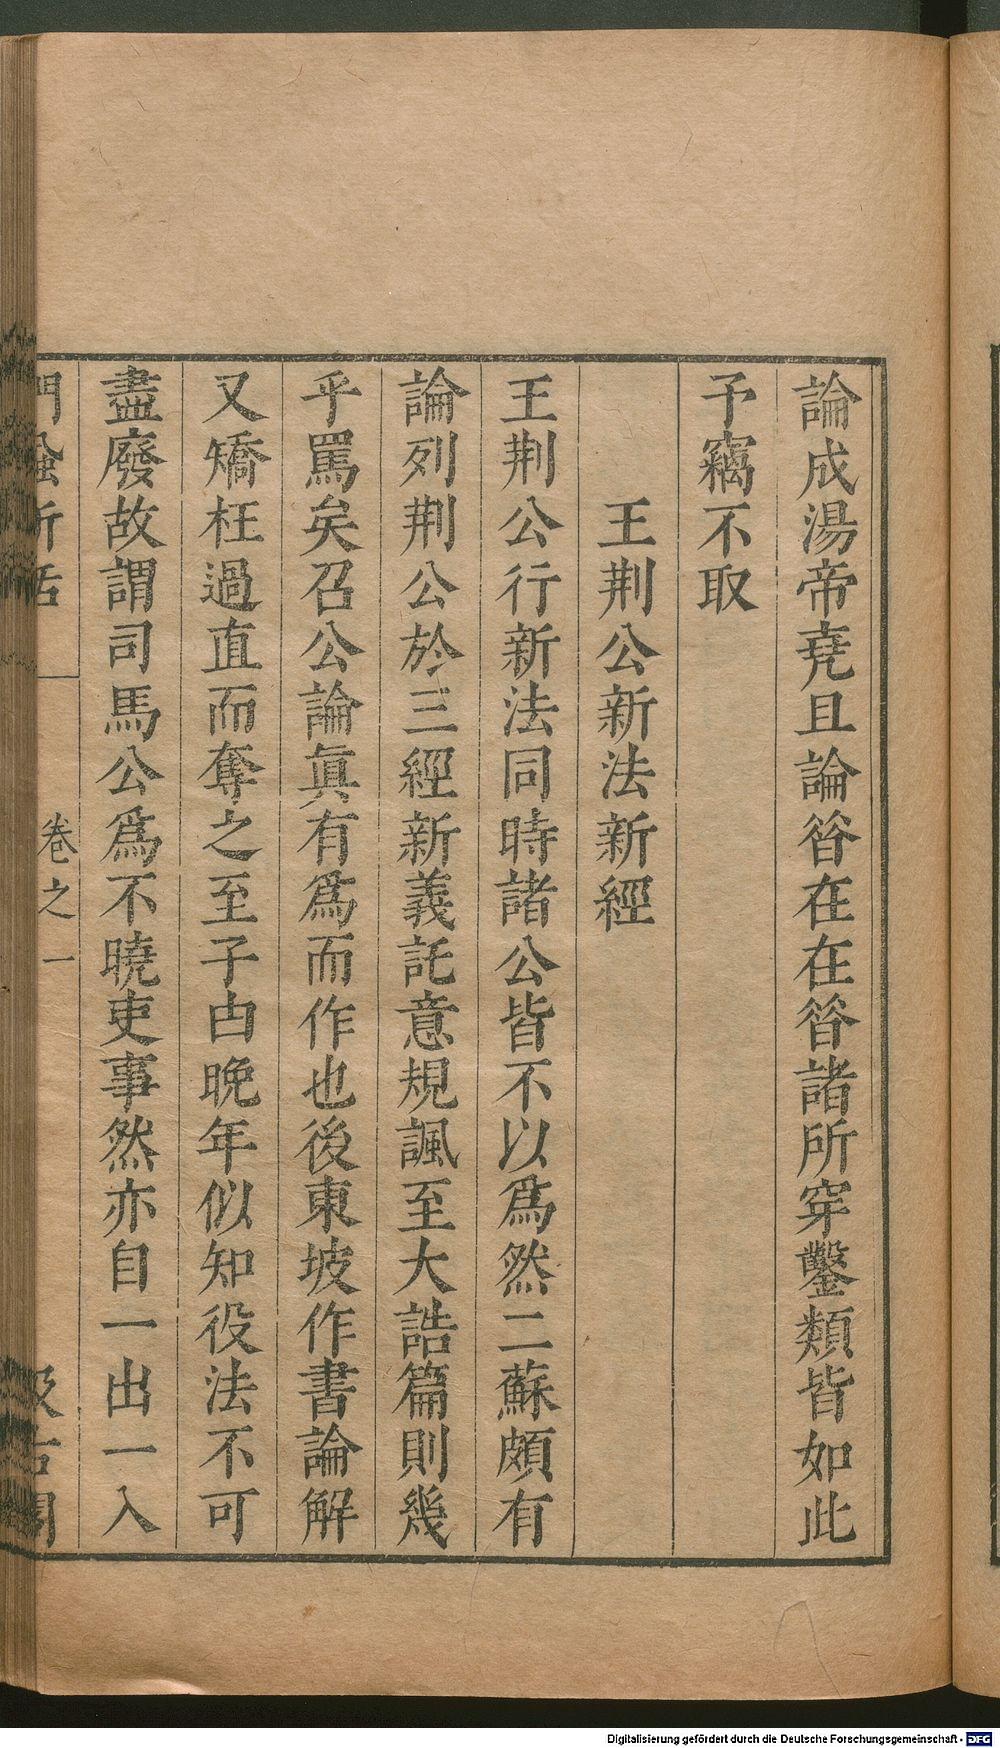 論成湯帝堯且論咎在在咎諸所穿鑿類皆如此
予竊不取
王荆公新法新經
王荆公行新法同時諸公皆不以爲然二蘇頗有
論列荆公於三經新義託意規諷至大誥篇則幾
乎罵矣召公論眞有爲而作也後東坡作書論解
又矯枉過直而奪之至子由晩年似知役法不可
盡廢故謂司馬公爲不曉吏事然亦自一出一入
門蝨新話
卷之一
汲古閣
Digitalisierung gefördert durch die Deutsche Forschungsgemeinschaft - DFG